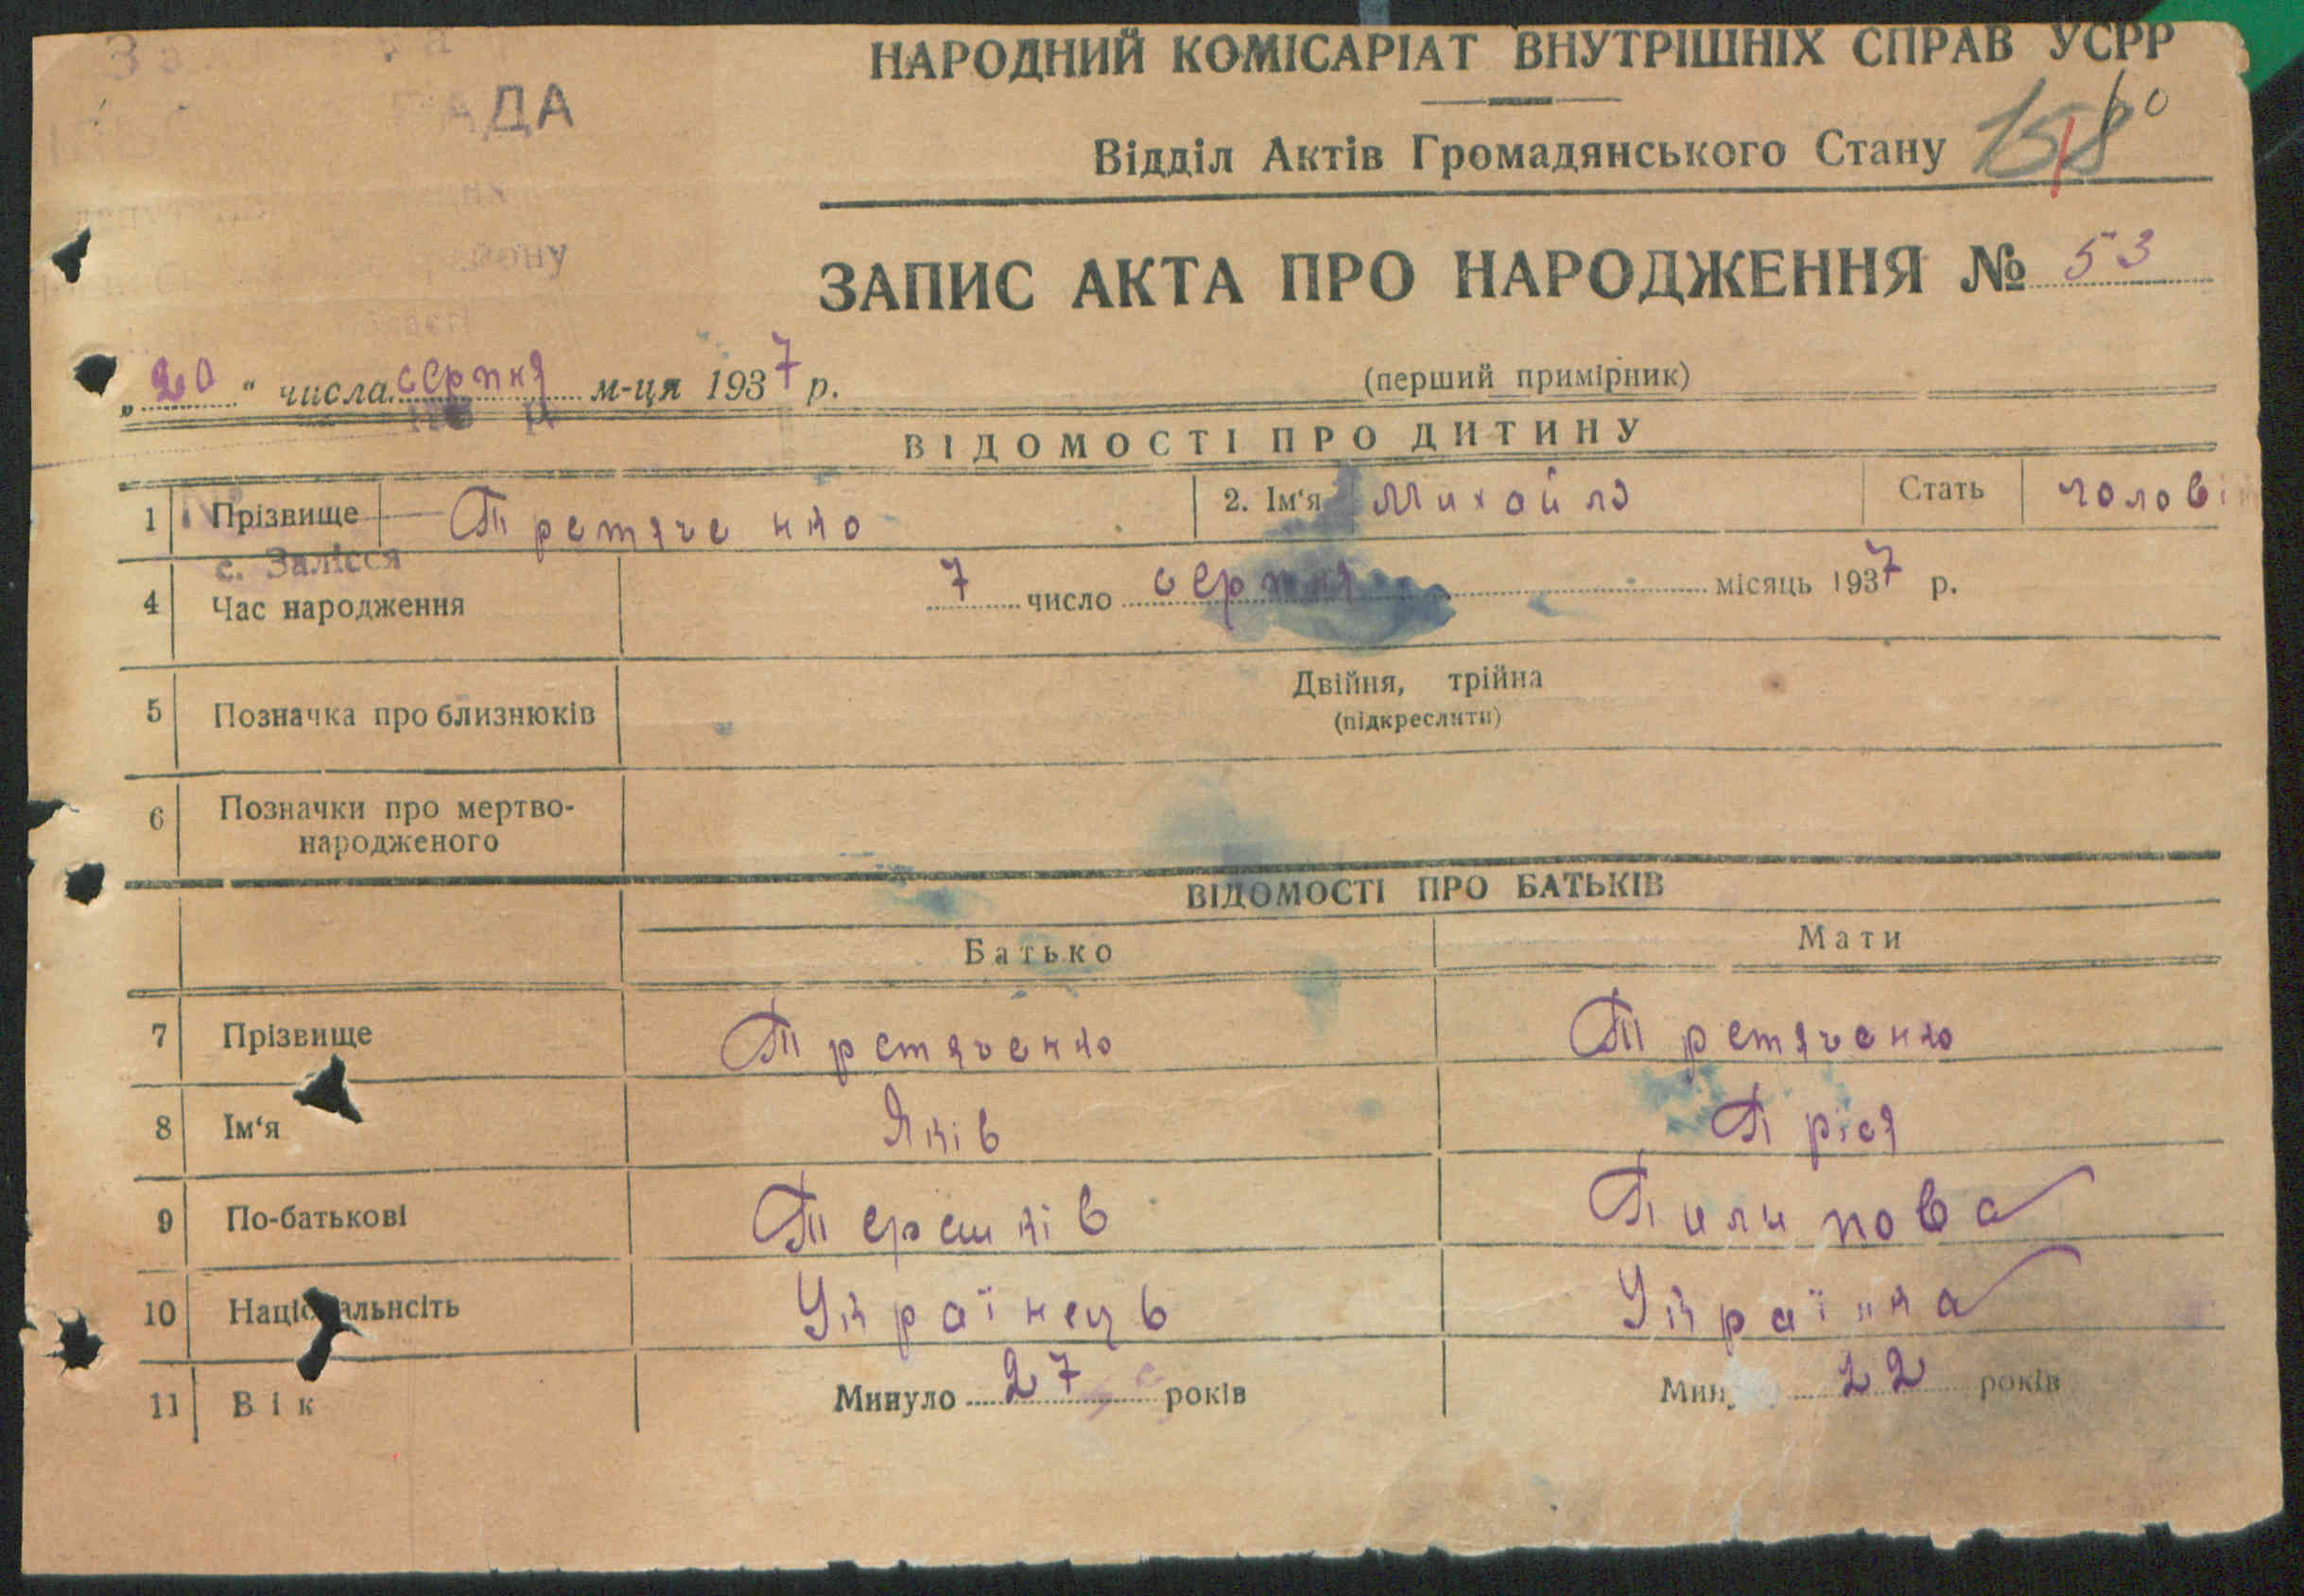 НАРОДНИЙ КОМІСАРІАТ ВНУТРІШНІХ СПРАВ УСРР
АДА
Відділ Актів Громадянського Стану
ЗАПИС АКТА ПРО НАРОДЖЕННЯ № 53
„20“ числа серпня м-ця 1937 р.
(перший примірник)
ВІДОМОСТІ ПРО ДИТИНУ
1 Прізвище Третяченко 2. Ім‘я Михайло Стать чолові
с. Залісся
4 Час народження 7 число серпня місяць 1937 р.
5 Позначка про близнюків Двійня, трійна
(підкреслити)
6 Позначки про мертво-
народженого
ВІДОМОСТІ ПРО БАТЬКІВ
Батько Мати
7 Прізвище Третяченко Третяченко
8 Ім‘я Яків Пріся
9 По-батькові Терешків Пилипова
10 Націо альнсіть Українець Українка
11 Вік Минуло 27 років Мин 22 років